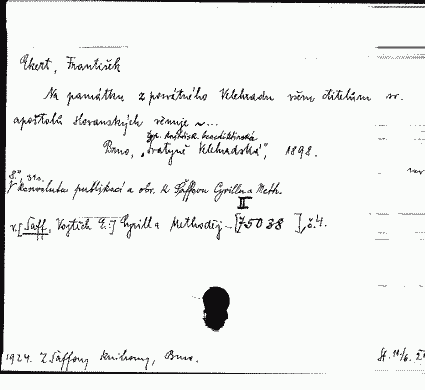 Ekert, František
Na památku z posvátného Velehradu všem ctitelům sv.
apoštolů slovanských věnuje ~...
typ. knihtisk. benediktinská
Brno, „Svatyně Velehradská", 1898.
8°, 31 s.
V konvolutu publikací a obr. k Šaffovu Cyrillu a Meth.
II
v. [Šaff, Vojtěch E.:] Cyrill a Methoděj – [75038 ], č. 4.
1924. Z Šaffovy knihovny, Brno.